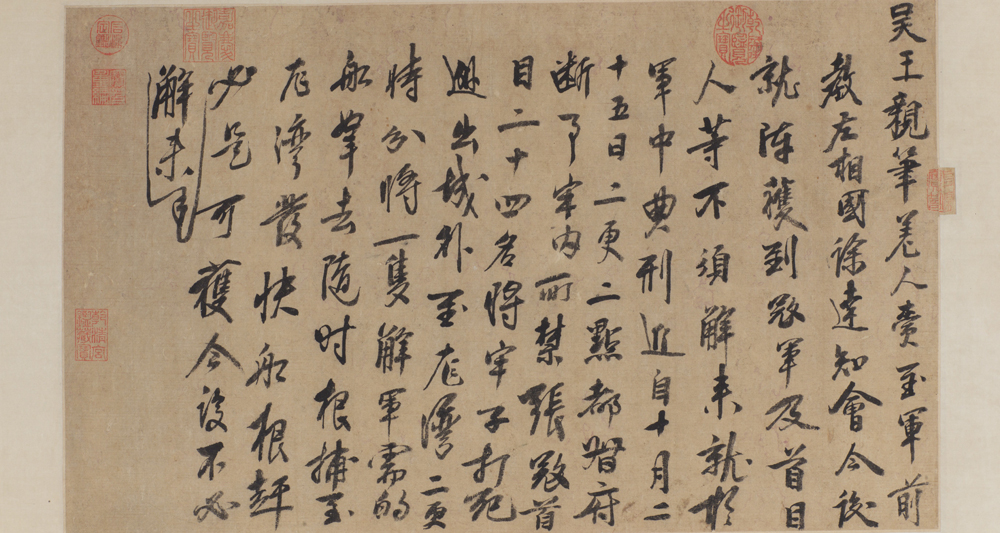 吴王親筆差人賫至軍前
教左相國徐達知會今後
就陣獲到寇軍及首目
人等不須解来就於
軍中典刑近自十月二
十五日二更二點都督府
断事牢内所禁張寇首
目二十四名將牢子打死
出城外至龙灣二更
時分將一隻解軍需的
船拿去隨时根捕至
龙灣發快船根趕
必是可獲今後不必
解来